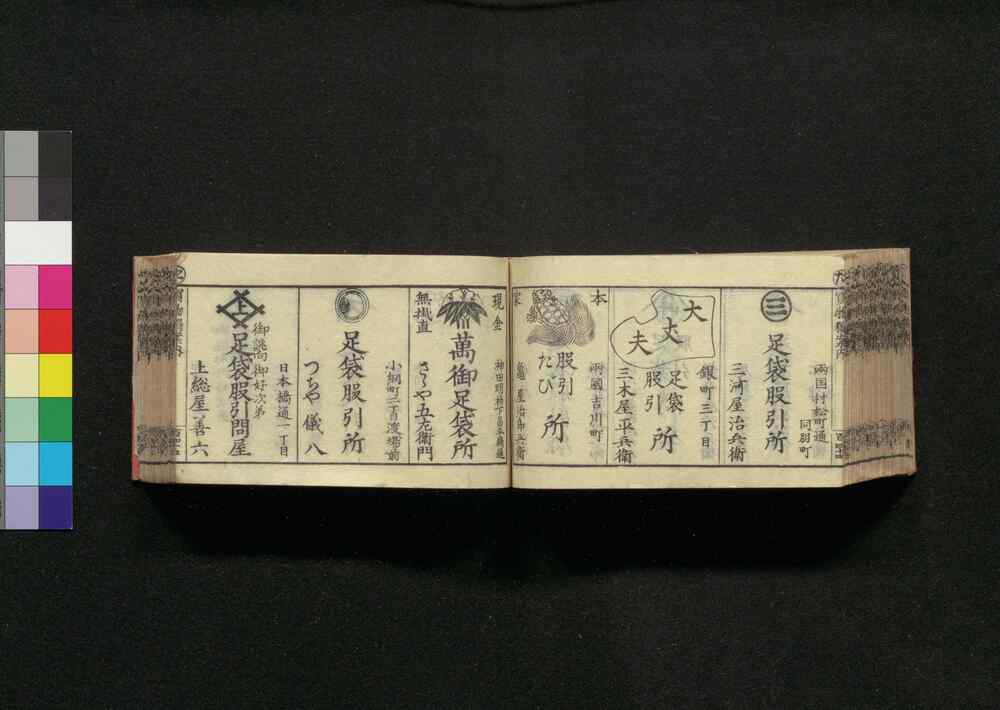 三
両国村松町通
同朋町
足袋股引所
三河屋治兵衛
大
丈
夫
銀町三丁目
足袋
股引
所
三木屋平兵衛
本
家
両國吉川町
股引
たび
所
亀屋治郎兵衛
現金
無掛直
萬御足袋所
さゝや五左衛門
小網町三丁目渡場前
足袋股引所
日本橋通一丁目
つちや儀八
上
御誂向御好次第
足袋股引問屋
上総屋善六